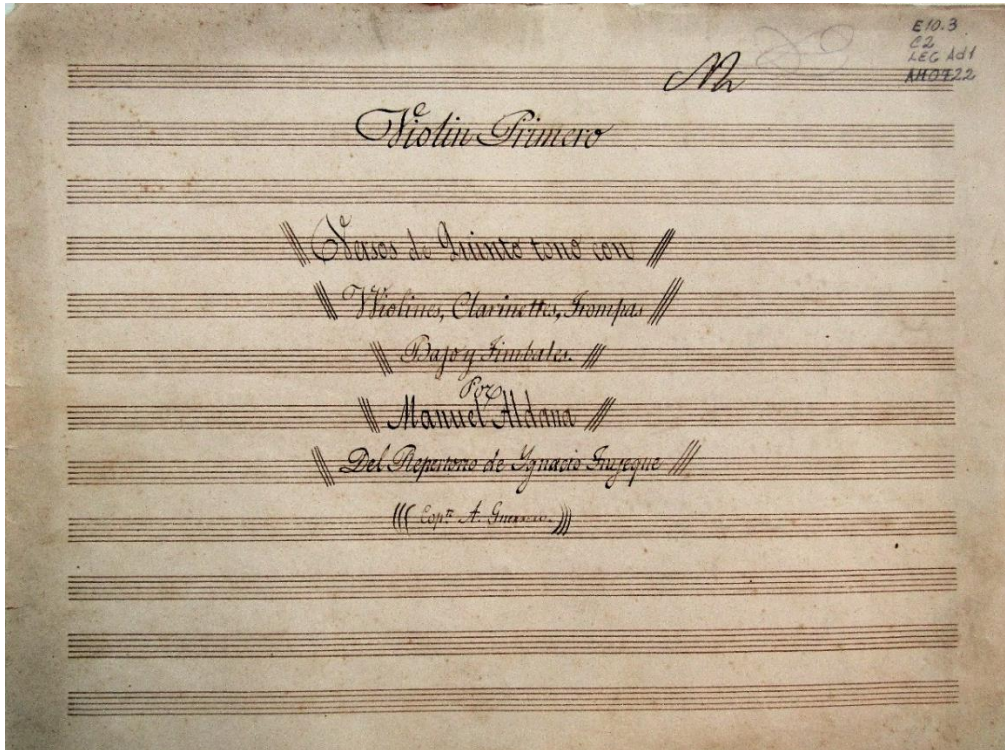 E10.3
C2
LEG Ad1
AM0722
Violin Primero
Versos de Quinto tono con
Violines, Clarinettes, Trompas
Bajo y Timbales.
Por
Manuel Aldana
Del Repertorio de Ygnacio Trujeque
A. Guerrero.